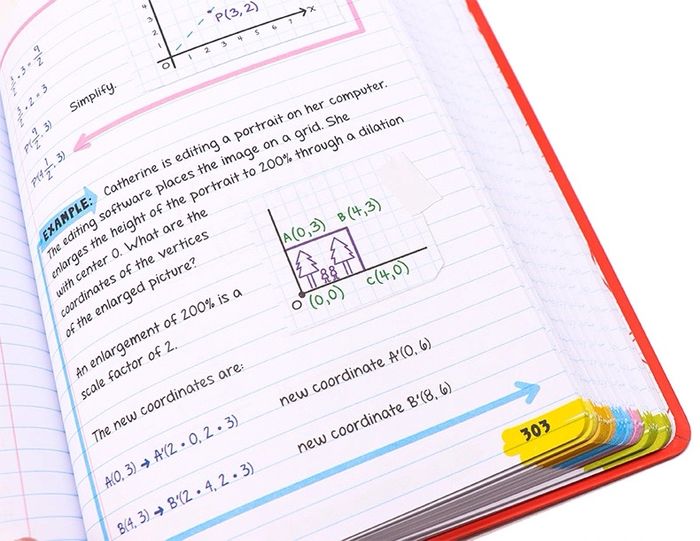 4
3
2
1
O
1 2 3 4 5 6 7
x
P(3,2)
1/2 · 3 = 9/2
3/2 · 2 = 3
P(9/2, 3)
P(4 1/2, 3)
Simplify.
EXAMPLE: Catherine is editing a portrait on her computer.
The editing software places the image on a grid. She
enlarges the height of the portrait to 200% through a dilation
with center O. What are the
coordinates of the vertices
of the enlarged picture?
A(0,3)
B(4,3)
O
(0,0)
C(4,0)
An enlargement of 200% is a
scale factor of 2.
The new coordinates are:
A(0, 3) → A'(2 · 0, 2 · 3) new coordinate A'(0, 6)
B(4, 3) → B'(2 · 4, 2 · 3) new coordinate B'(8, 6)
303